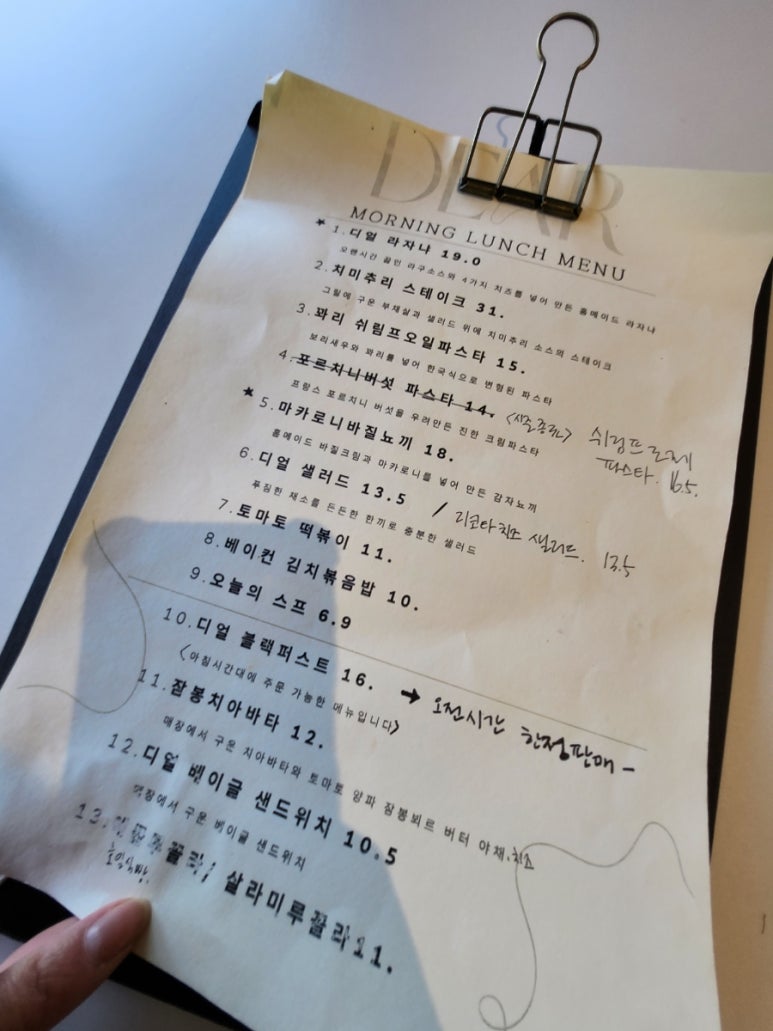 DEAR
MORNING LUNCH MENU
★ 1. 디얼 라자냐 19.0
오랜시간 끓인 라구소스와 4가지 치즈를 넣어 만든 홈메이드 라자냐
2. 치미추리 스테이크 31.
그릴에 구운 부채살과 샐러드 위에 치미추리 소스의 스테이크
3. 꽈리 쉬림프오일파스타 15.
보리새우와 꽈리를 넣어 한국식으로 변형된 파스타
4. 포르치니버섯 파스타 14. <시즌종료> 쉬림프로제
파스타. 16.5.
프랑스 포르치니 버섯을 우려만든 진한 크림파스타
★ 5. 마카로니바질뇨끼 18.
홈메이드 바질크림과 마카로니를 넣어 만든 감자뇨끼
6. 디얼 샐러드 13.5 / 리코타치즈 샐러드. 13.5
푸짐한 채소를 든든한 한끼로 충분한 샐러드
7. 토마토 떡볶이 11.
8. 베이컨 김치볶음밥 10.
9. 오늘의 스프 6.9
10. 디얼 블랙퍼스트 16. → 오전시간 한정판매 -
<아침시간대에 주문 가능한 메뉴입니다>
11. 잠봉치아바타 12.
매장에서 구운 치아바타와 토마토 양파 잠봉뵈르 버터 야채, 치즈
12. 디얼 벳이글 샌드위치 10.5
매장에서 구운 베이글 샌드위치
13. 꼴라; 살라미루꼴라 11.